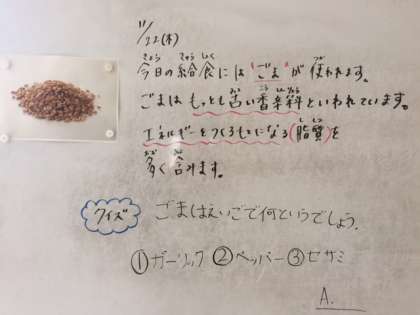 11/22(木)
きょう きゅう しょく つか
今日の給食には"ごま"が使われます。
ふる こう しんりょう
ごまはもっとも古い香辛料といわれています。
し しつ
エネルギーをつくるもとになる(脂質)を
おお ふく
多く含みます。
クイズ ごまはえいごで何というでしょう.
①ガーリック ②ペッパー ③セサミ
A.